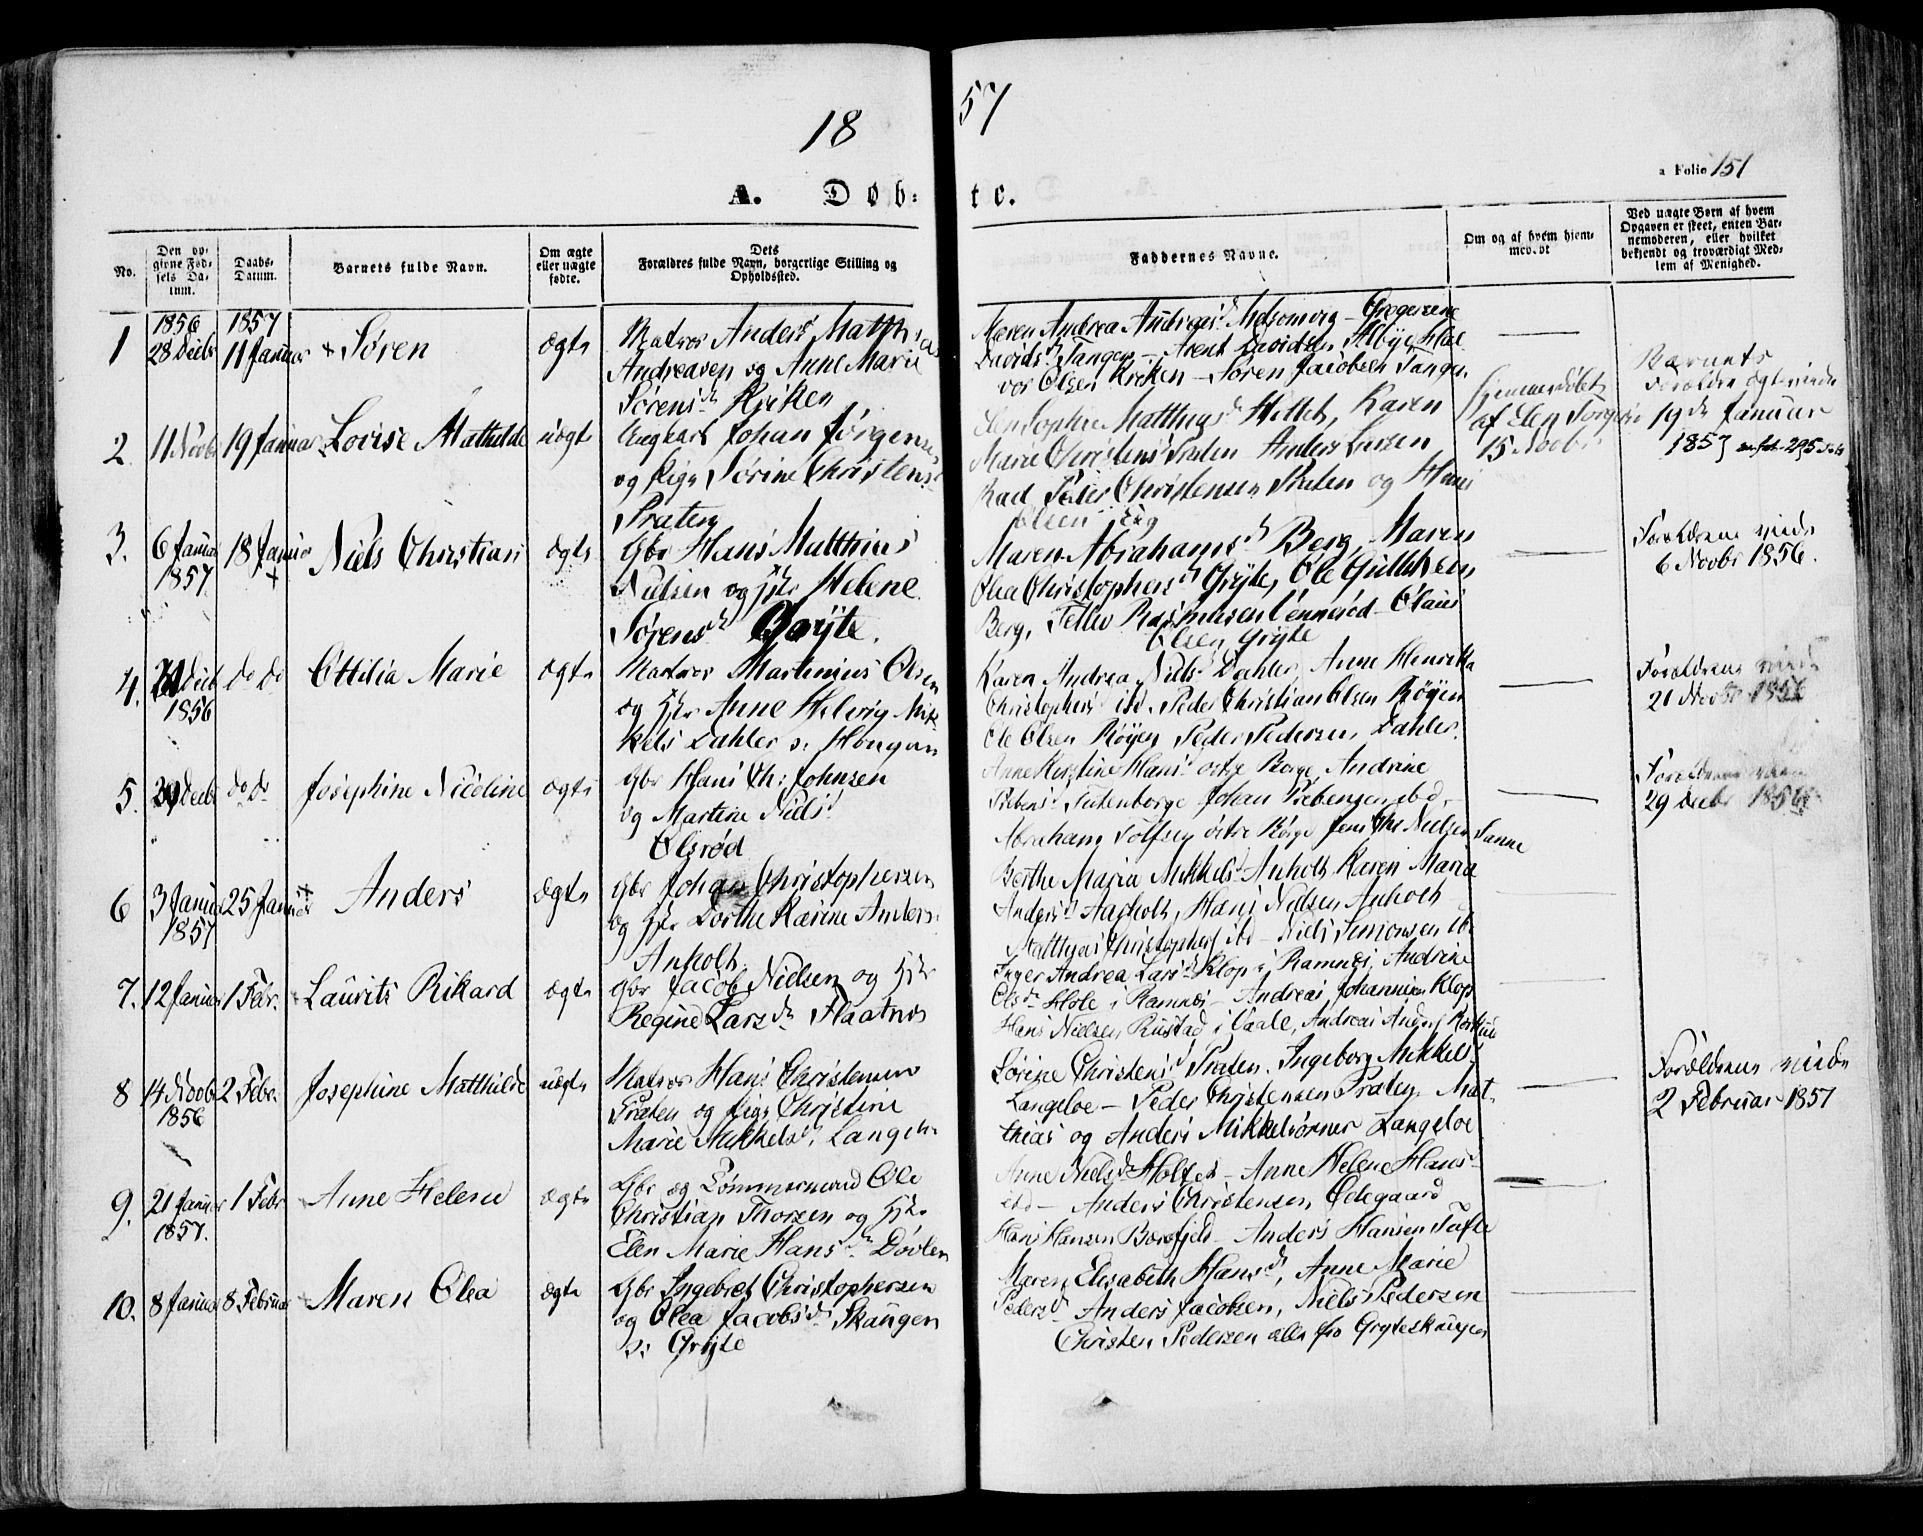 18 57
a Folio 151
A. Døb: te.
No.
Den op-
givne Fød-
sels Da-
tum.
Daabs-
Datum.
Barnets fulde Navn.
Om ægte
eller uægte
fødte.
Dets
Forældres fulde Navn, borgerlige Stilling og
Opholdssted.
Faddernes Navne.
Om og af hvem hjem-
medøbt
Ved uægte Børn af hvem
Opgaven er skeet, enten Bar-
nemoderen, eller hvilket
bekjendt og troværdigt Med-
lem af Menighed.
1
1856
28 Decbr
1857
11 Januar
Søren
ægte
Matros Anders Matthias
Andreasen og Anne Marie
Sørensd. Kriken
Maren Andrea Andreasd.
Davidsd. Tangen - Arent Davidsen
vor Olsen Kriken - Søren Jacobsen Tangen
2
11 Novbr
19 Januar
Lovise Mathilde
uægte
Ungkarl Johan Jørgensen
og Pige Sørine Christensd.
Præten
Elen Sophie Matthiasd. Karen
Marie Christensd. Præten Anders Larsen
Rad Peder Christensen Præten og Hans
Olsen
Hjemmedøbt
af Elen
15 Novbr
Barnets
Forældre ægteviede
19de Januar
1857
3.
6 Januar
1857
18 Januar
Niels Christian
ægte
Gbr Hans Matthias
Nielsen og Hstr Helene
Sørensd. Grÿte.
Maren Abrahamsd. Berg, Maren
Olea Christophersd. Grÿte, Ole Gulliksen
Berg, Rasmusen - Olaus
Olsen Grÿte
Forældrene viede
6 Novbr 1856.
4.
Decbr
1856
do do
Ottilia Marie
ægte
Matros Martinius Olsen
og Hstr Anne Helvig Mik
kelsd Dahler
Karen Andrea Nielsd Dahler, Anne Henrikka
Christophersd ibd. Peder Christian Olsen Røÿen
Ole Olsen Røÿen Peder Pedersen, Dahler.
Forældrene viede
21 Novbr 1856
5.
Decbr
do do
Josephine Nicoline
ægte
Gbr Hans Chr: Johnsen
og Martine Nielsd
Olsrød
Anne Kirstine Hansd østre Borge, Andrine
Johan Prebensen ibd.
Abraham østre Borge Jens Chr Nielsen Sanne
Forældrene viede
29 Decbr 1856
6
3 Januar
1857
25 Januar
Anders
ægte
Gbr Johan Christophersen
og Hstr Dorthe Karine Andersd
Anholt.
Berthe Maria Mikkelsd Anholt, Karen Maria
Andersd Aagholt, Hans Nielsen Anholt
Matthias Christophers ibd - Niels Simonsen ib.
7.
12 Januar
1 Febr.
Laurits Rikard
ægte
Gbr Jacob Nielsen og Hstr
Regine Larsd. Flaatnes
Inger Andrea Larsd. Klop i Ramnes, Andrine
Olsd. Hole i Ramnes - Andreas Johannesen Klop
Hans Nielsen Rustad i Vaale, Andreas
8
14 Novbr
1856
2 Febr.
Josephine Matthilde
uægte
Matros Hans Christensen
Præten og Pige Christine
Marie Mikkelsd. Langeloe
Sørine Christensd. Præten. Ingeborg Mikkelsd.
Langeloe - Peder Christensen Præten, Mat-
thias og Anders Mikkelsønner Langeloe
Forældrene viede
2 Februar 1857
9.
21 Januar
1857.
1 Febr
Anne Helene
ægte
Gbr og Tømmermand Ole
Christian Thorsen og Hstr
Elen Marie Hansd. Døvlen
Anne Nielsd. Holtet - Anne Helene Hansd
ibd - Anders Christensen, Ødegaard
Hans Hansen - Anders Hansen Tufte
10.
8 Januar
8 Februar
Maren Olea
ægte
Gbr Ingebret Christophersen
og Olea Jacobsd. Skaugen
Grÿte
Maren Elisabeth Hansd., Anne Marie
Pedersd. Anders Jacobsen, Niels Pedersen
Christen Pedersen alle fra Grÿteskaugen